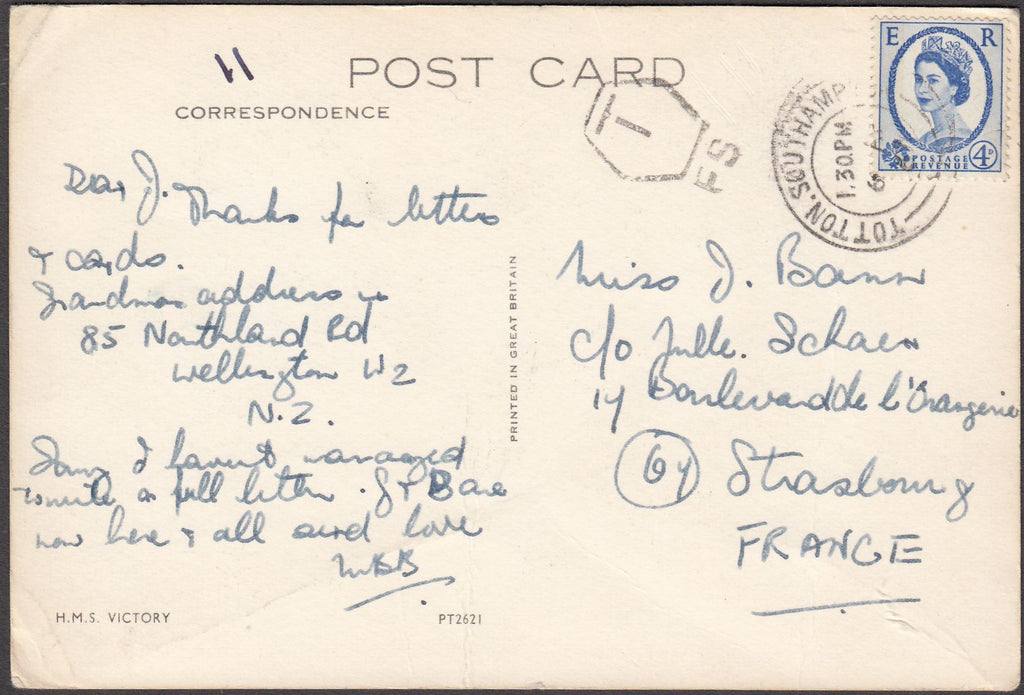 11
POST CARD
CORRESPONDENCE
T
FS
TOTTON. SOUTHAMP
1.30PM
E R
POSTAGE
REVENUE
4D
Dear J. Thanks for letters
& cards.
Grandmas address is
85 Northland Rd
Wellington W2
N.Z.
Sorry I havent managed
to write a full letter. G & B are
now here & all send love
MBB
PRINTED IN GREAT BRITAIN
Miss J. Bann
c/o Mlle.
14 Boulevard de l'Orangerie
(67) Strasbourg
FRANCE
H.M.S. VICTORY
PT2621